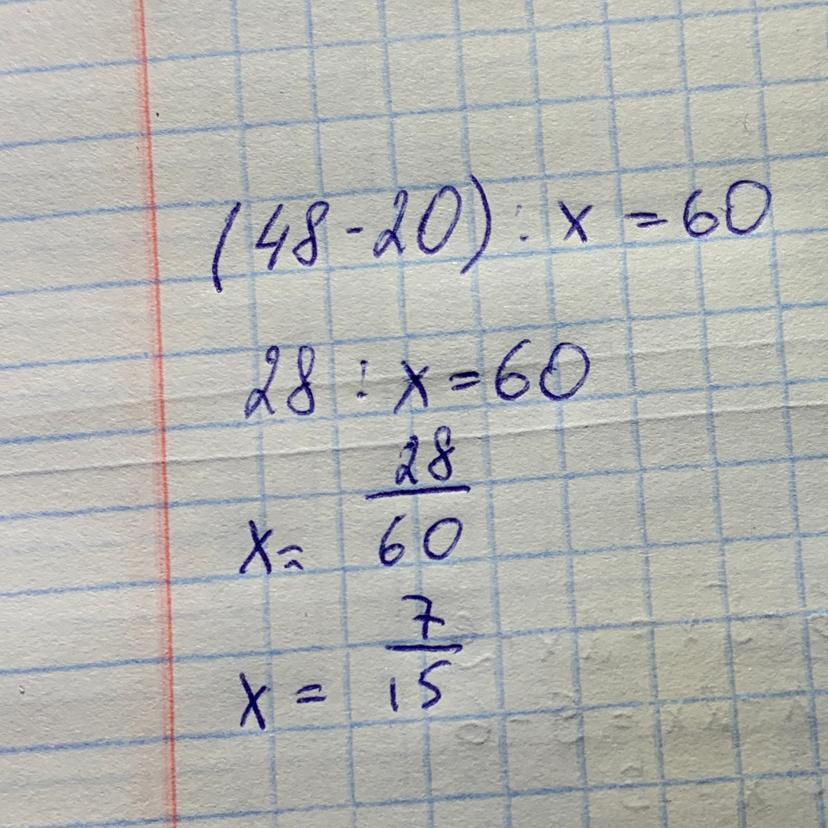 (48-20) : x = 60
28 : x = 60
x = 28/60
x = 7/15